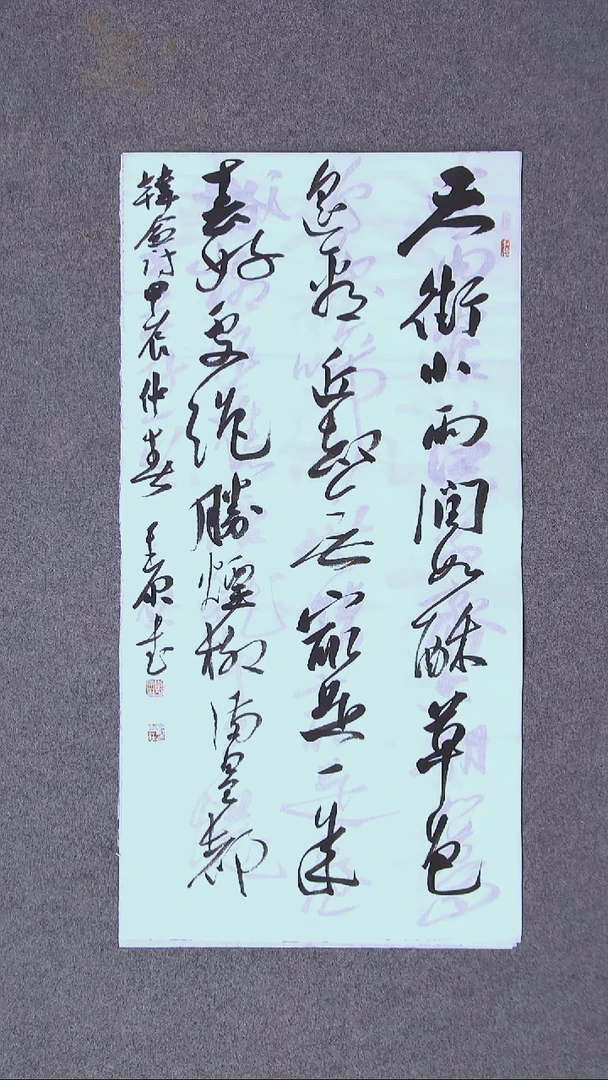 天街小雨润如酥草色
遥看近却无最是一年
春好处绝勝煙柳满皇都
韓愈诗甲辰仲春 书